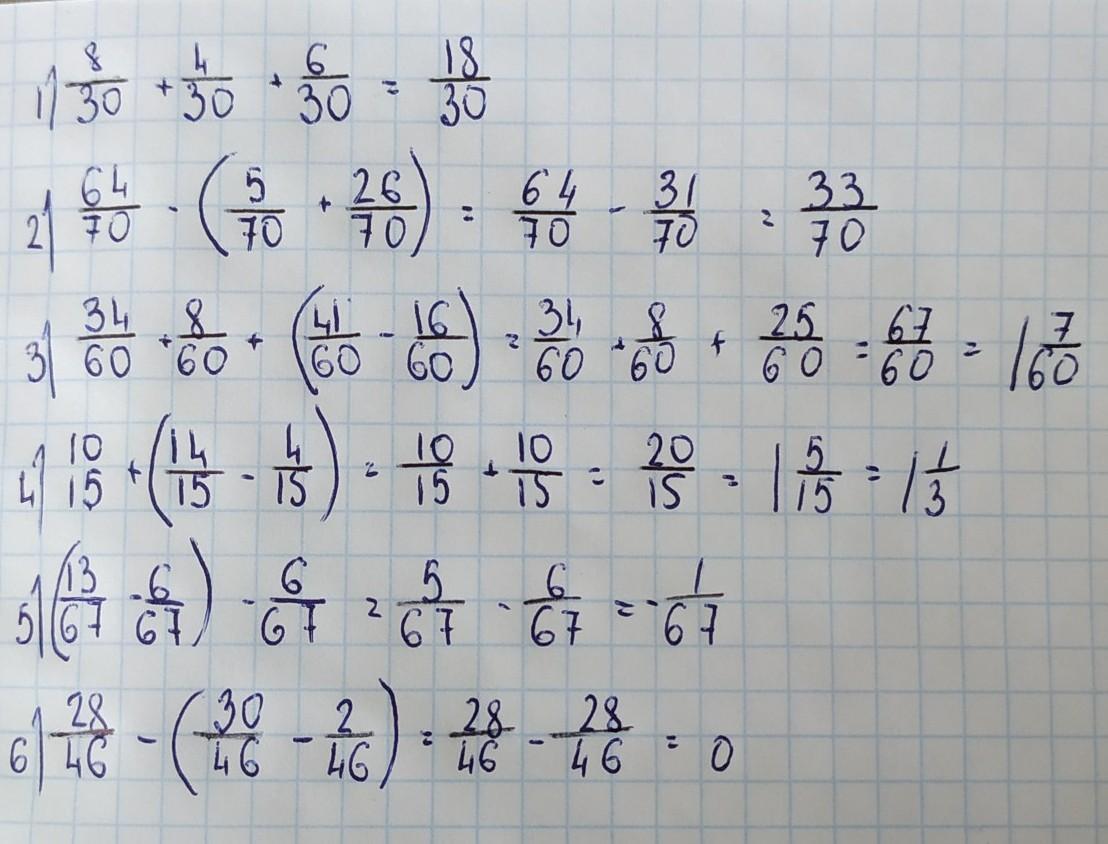 1) 8/30 + 4/30 + 6/30 = 18/30
2) 64/70 - (5/70 + 26/70) = 64/70 - 31/70 = 33/70
3) 34/60 + 8/60 + (41/60 - 16/60) = 34/60 + 8/60 + 25/60 = 67/60 = 1 7/60
4) 10/15 + (14/15 - 4/15) = 10/15 + 10/15 = 20/15 = 1 5/15 = 1 1/3
5) (13/67 - 6/67) - 6/67 = 5/67 - 6/67 = - 1/67
6) 28/46 - (30/46 - 2/46) = 28/46 - 28/46 = 0